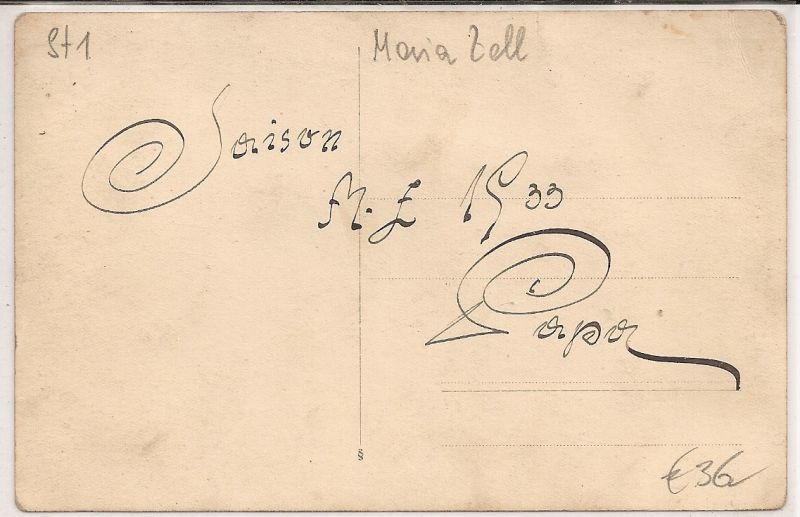 St1
Maria Zell
Saison
M. Z 1933
Papa
€36